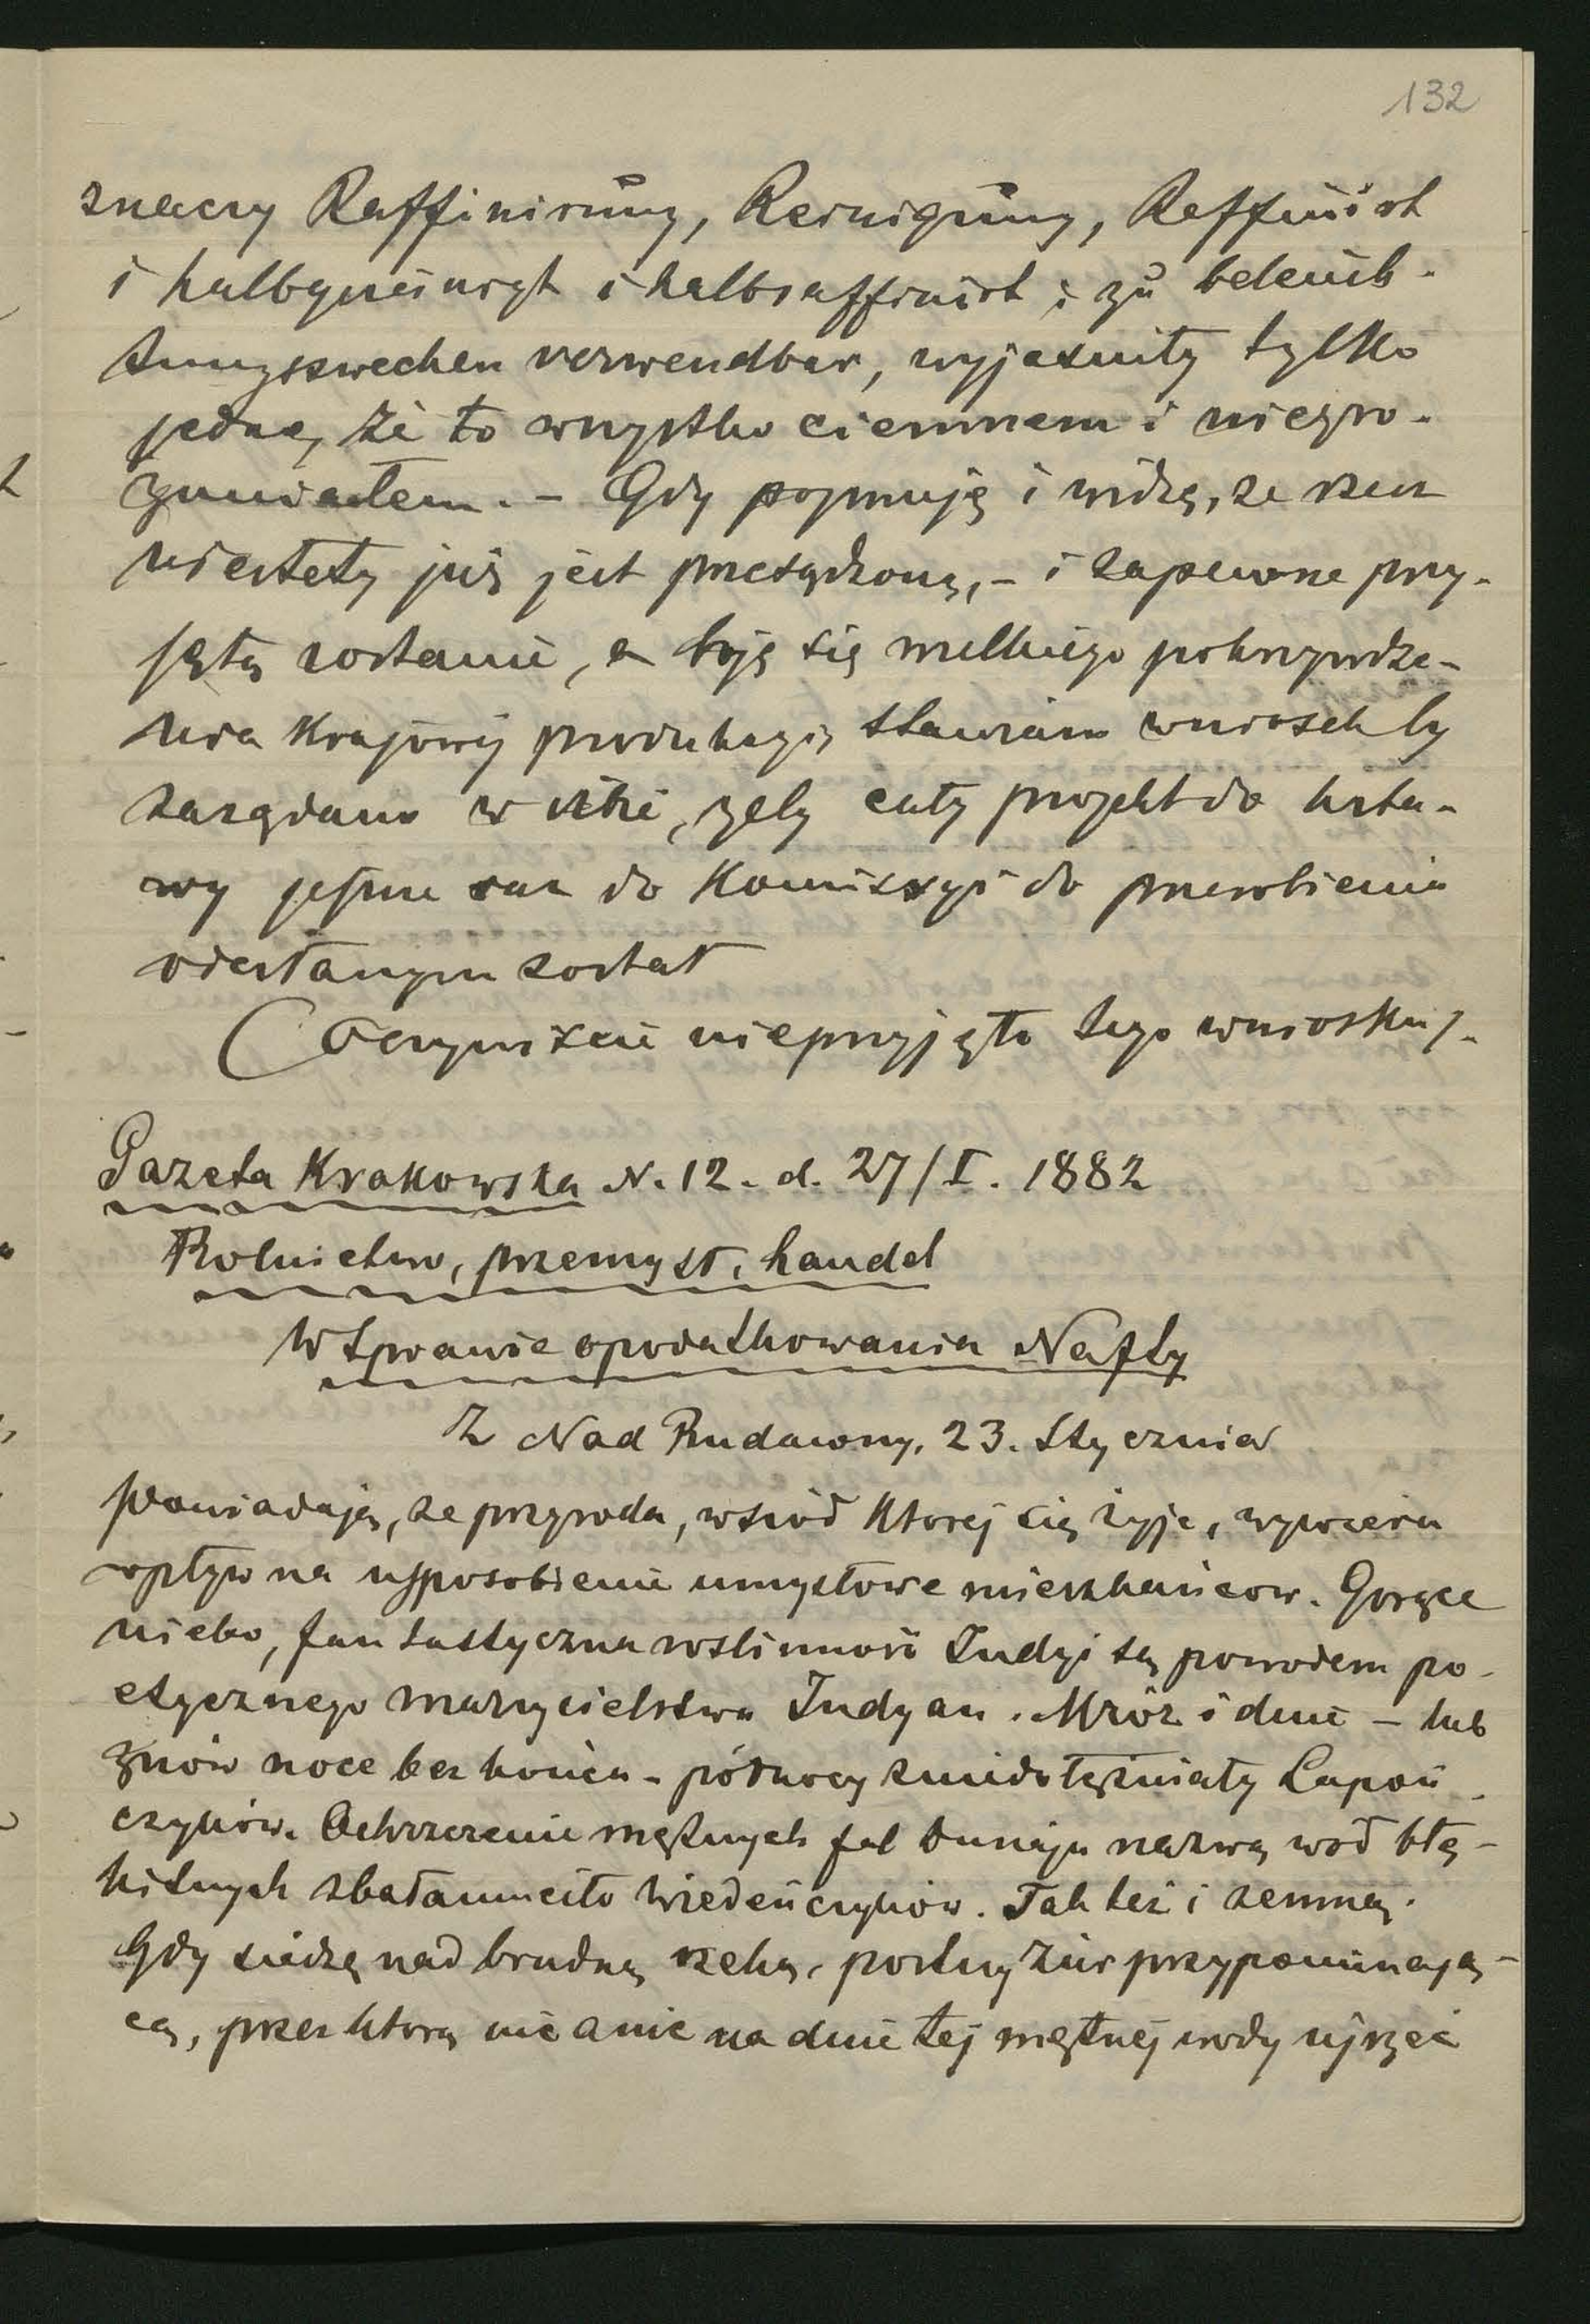 132
znaczy Raffinirung, Reinigung, Raffinirt
i halbgereinigt i halbraffinirt i zu beleuch-
tungszwecken verwendbar, wyjaśniły tylko
jedno, że to wszystko ciemnem i niezro-
zumiałem. - Gdy pojmuję i widzę, że rzecz
niestety już jest przesądzoną, - i zapewne przy-
jętą zostanie, a boję się wielkiego pokrzywdze-
nia Krajowej produkcyi, stawiam wniosek by
zażądano w izbie, żeby cały projekt do usta-
wy jeszcze raz do Komissyi do przerobienia
odesłanym został
(Oczywiście nieprzyjęto tego wniosku).
Gazeta Krakowska N. 12. d. 27/I. 1882
Rolnictwo, przemysł, handel
W sprawie opodatkowania Nafty
Z Nad Rudawy, 23. Stycznia
Powiadają, że przyroda, wśród Której się żyje, wywiera
wpływ na usposobienie umysłowe mieszkańcow. Gorące
niebo, fantastyczna roślinność Indyi są powodem po-
etycznego marzycielstwa Indyan. Mróz i dnie - lub
znów noce bez końca - północy zniedołężniały Lapoń-
czyków. Ochrzczenie mętnych fal Dunaju nazwą wód błę-
kitnych zbałamuciło Wiedeńczyków. Tak też i zemną.
Gdy siedzę nad brudną rzeką, postny żur przypominają-
cą, przez którą nic a nic na dnie tej mętnej wody ujrzeć